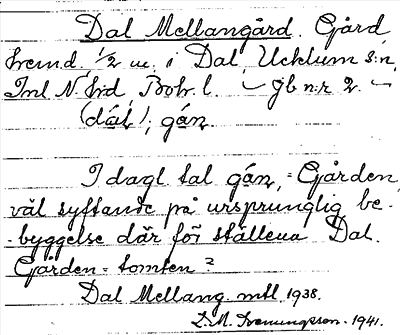 Dal Mellangård. Gård
hemd. 1/2 m. i Dal, Ucklum s:n,
Inl. N. hrd, Boh. l. – jb n:r 2. –
(dɑ́l); gɑ́n.
I dagl. tal gɑ́n, = Gården,
väl syftande på ursprunglig be-
-byggelse där för ställena Dal.
Gården = tomten?
Dal Mellang. mtl 1938.
1941.